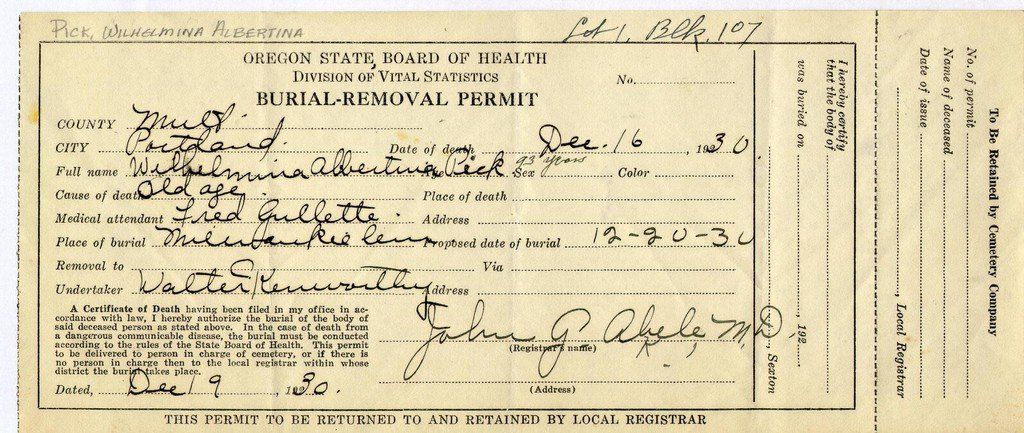 PICK, WILHELMINA ALBERTINA
Lot 1, Blk. 107
OREGON STATE BOARD OF HEALTH
DIVISION OF VITAL STATISTICS
No.
BURIAL-REMOVAL PERMIT
COUNTY Mult.
CITY Portland. Date of death Dec. 16, 1930.
Full name Wilhelmina Albertina Pick. 93 years Sex Color
Cause of death Old age. Place of death
Medical attendant Fred Gullette. Address
Place of burial Milwaukie Proposed date of burial 12-20-30
Removal to Via
Undertaker Walter C Kenworthy Address
A Certificate of Death having been filed in my office in ac-
cordance with law, I hereby authorize the burial of the body of
said deceased person as stated above. In the case of death from
a dangerous communicable disease, the burial must be conducted
according to the rules of the State Board of Health. This permit
to be delivered to person in charge of cemetery, or if there is
no person in charge then to the local registrar within whose
district the burial takes place.
Dated, Dec 19 1930.
John G Abele, M.D.
(Registrar's name)
(Address)
THIS PERMIT TO BE RETURNED TO AND RETAINED BY LOCAL REGISTRAR
I hereby certify
that the body of
was buried on
, 192
, Sexton
To Be Retained by Cemetery Company
No. of permit
Name of deceased
Date of issue
, Local Registrar